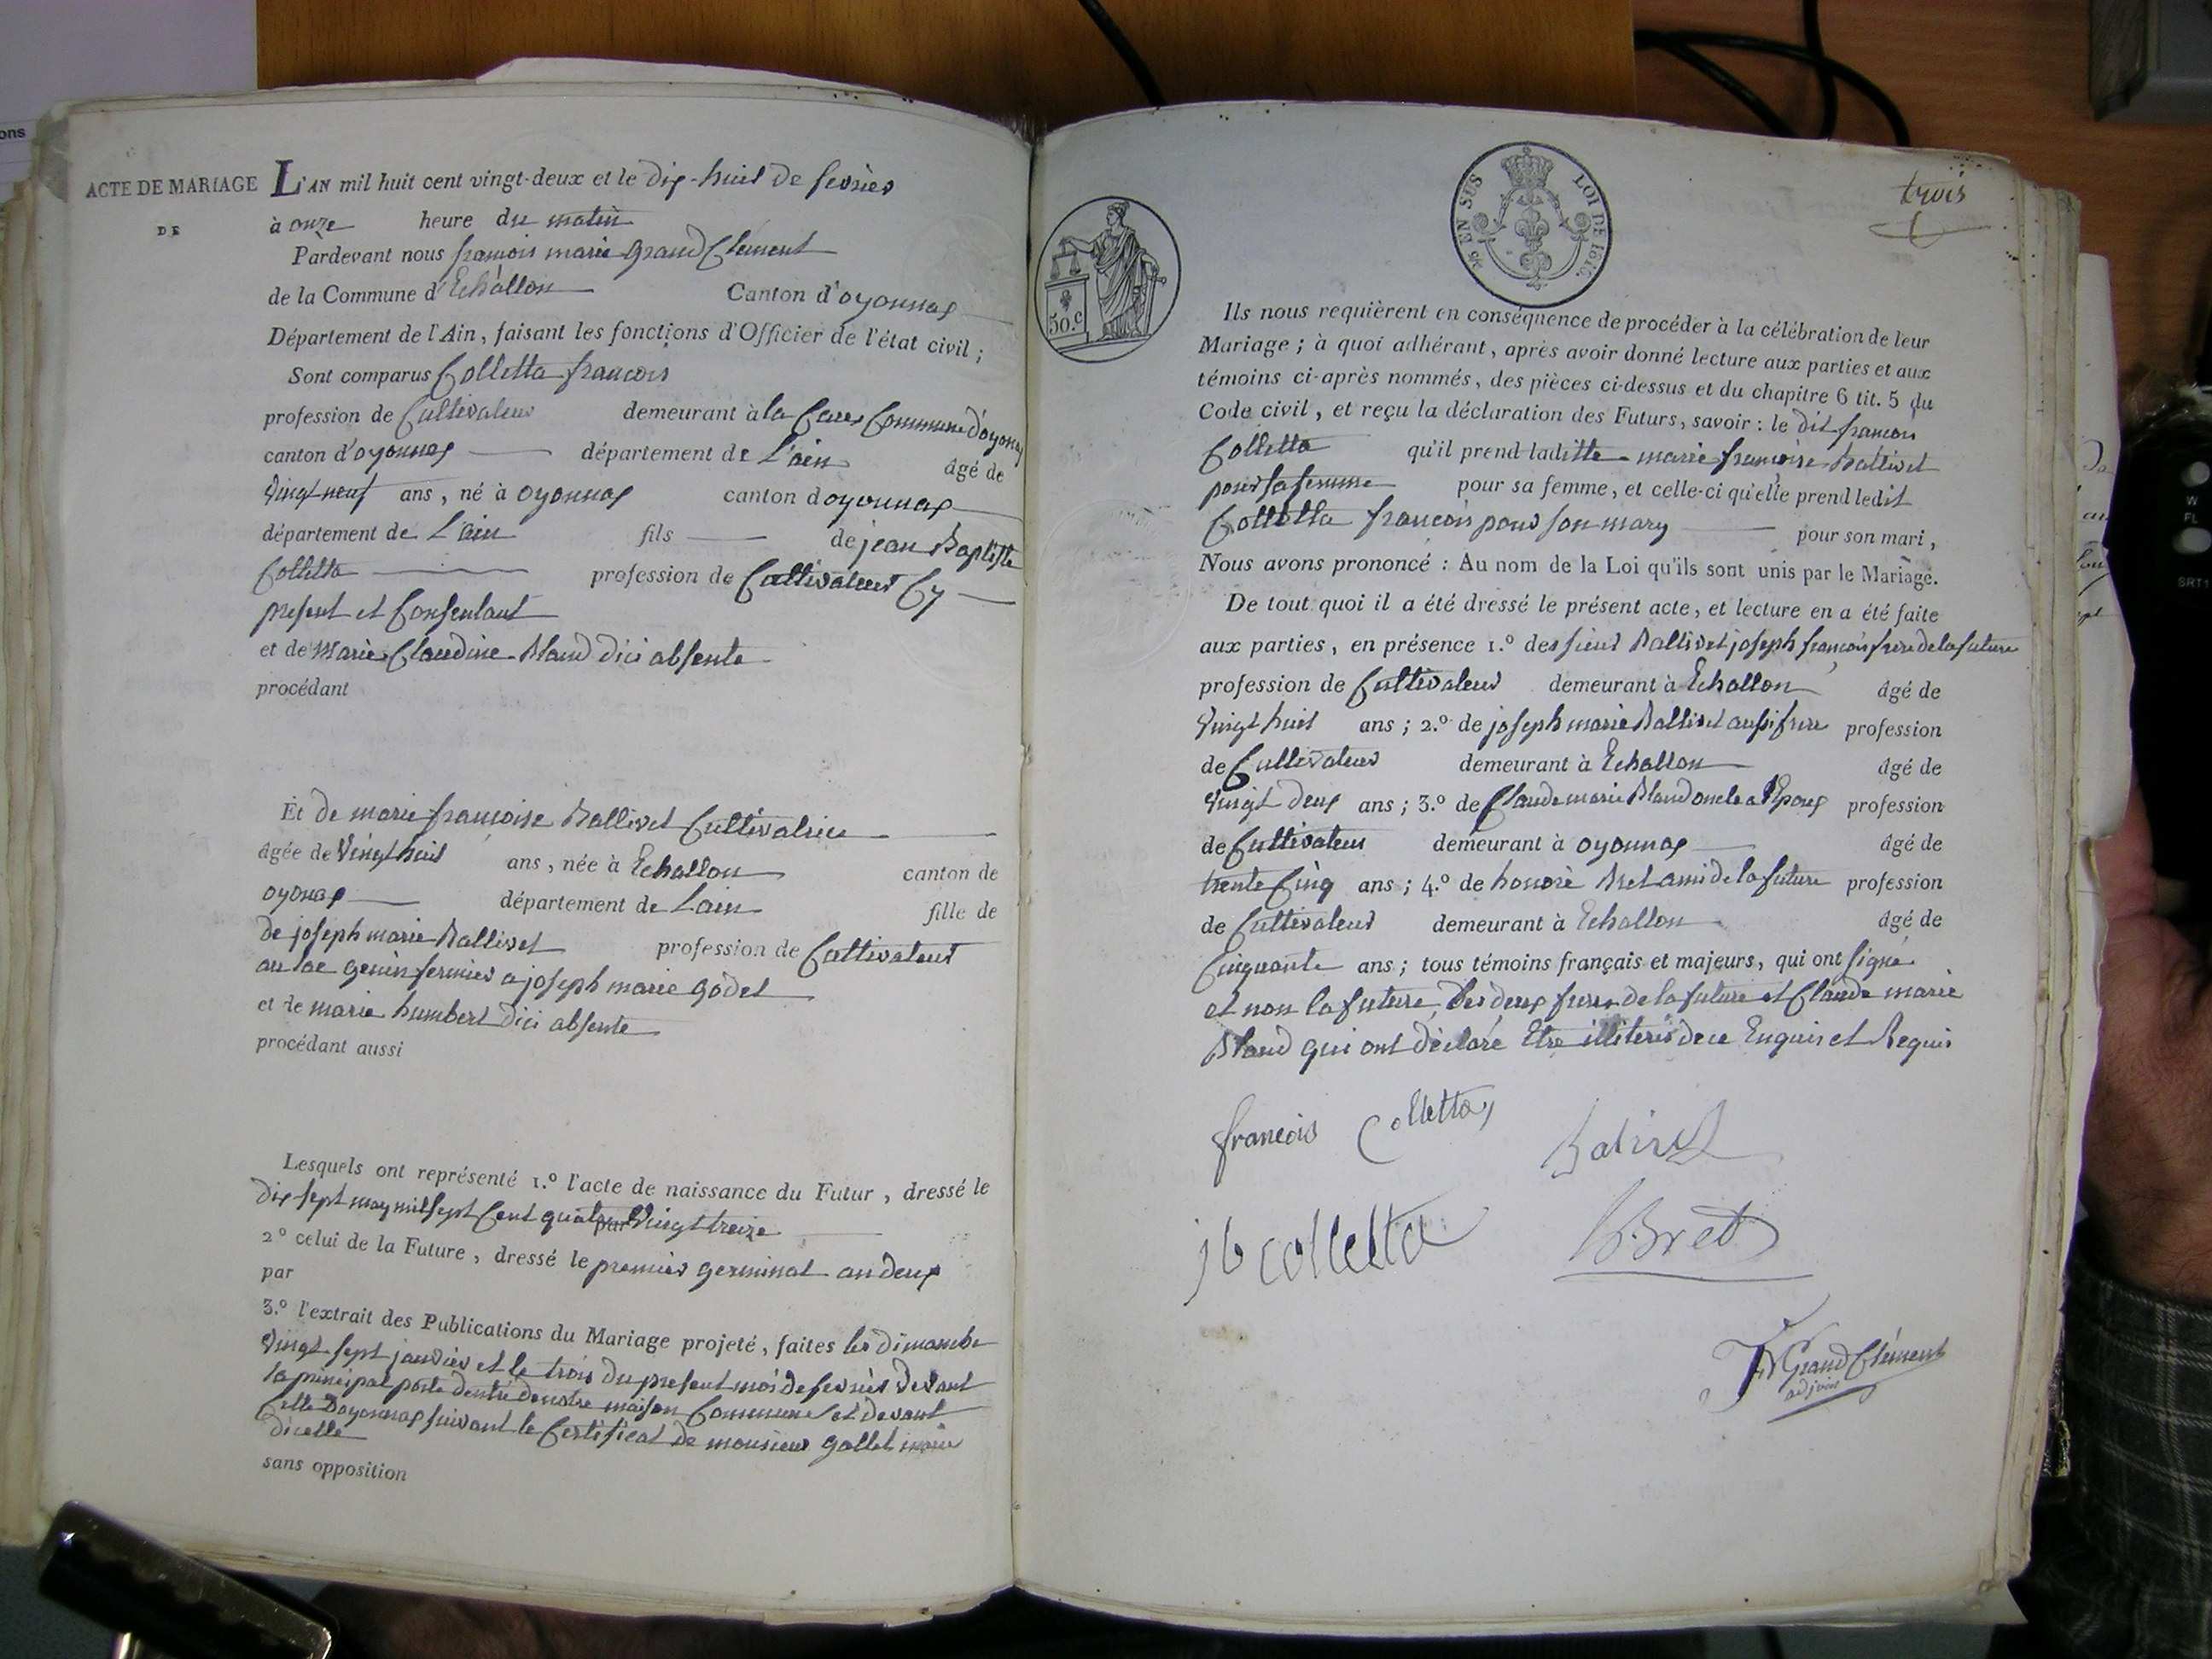 ons
ACTE DE MARIAGE
DE
L'AN mil huit cent vingt-deux et le dix-huit de fevrier
à onze heure du matin
Pardevant nous francois marie grand Clement
de la Commune d'Echallon Canton d'oyonnax
Département de l'Ain, faisant les fonctions d'Officier de l'état civil ;
Sont comparus Colletta francois
profession de Cultivateur demeurant à la Commune d'oyonnax
canton d'oyonnax département de L'ain âgé de
vingt neuf ans, né à oyonnax canton d'oyonnax
département de L'ain fils de jean Baptiste
Colletta profession de Cultivateur Cy
present et Consentant
et de Marie Claudine Bland dici absente
procédant
Et de marie françoise Ballivet Cultivatrice
âgée de Vingt huit ans, née à Echallon canton de
oyonax département de Lain fille de
de joseph marie Ballivet profession de Cultivateur
au lac genin fermier a joseph marie godet
et de marie humbert dici absente
procédant aussi
Lesquels ont représenté 1.º l'acte de naissance du Futur, dressé le
dix sept may mil sept Cent quatre Vingt treize
par
2º celui de la Future, dressé le premier germinal an deux
par
3.º l'extrait des Publications du Mariage projeté, faites les dimanche
vingt sept janvier et le trois du present mois de fevrier devant
la principal porte dentré de notre maison Commune et devant
Celle d'oyonnax suivant le Certificat de monsieur gollet maire
dicelle
sans opposition
50.c
EN SUS
LOI DE 1816.
trois
Ils nous requièrent en conséquence de procéder à la célébration de leur
Mariage ; à quoi adhérant, après avoir donné lecture aux parties et aux
témoins ci-après nommés, des pièces ci-dessus et du chapitre 6 tit. 5 du
Code civil, et reçu la déclaration des Futurs, savoir : le dit francois
Colletta qu'il prend laditte marie françoise Ballivet
pour sa femme pour sa femme, et celle-ci qu'elle prend ledit
Colletta francois pour son mary pour son mari,
Nous avons prononcé : Au nom de la Loi qu'ils sont unis par le Mariage.
De tout quoi il a été dressé le présent acte, et lecture en a été faite
aux parties, en présence 1.º des sieur Ballivet joseph francois frere de la future
profession de Cultivateur demeurant à Echallon âgé de
Vingt huit ans ; 2.º de joseph marie Ballivet aussi frere profession
de Cultivateur demeurant à Echallon âgé de
Vingt deux ans ; 3.º de Claude marie Bland oncle a l'Epoux profession
de Cultivateur demeurant à oyonnax âgé de
trente Cinq ans ; 4.º de honoré Bret ami de la future profession
de Cultivateur demeurant à Echallon âgé de
Cinquante ans ; tous témoins français et majeurs, qui ont signé
et non la future, les deux freres de la future et Claude marie
Bland qui ont déclaré Etre illiterés de ce Enquis et Requis
francois Colletta
Balivet
jb colletta
hBret
Grand Clément
adjoint
W
FL
SRT1